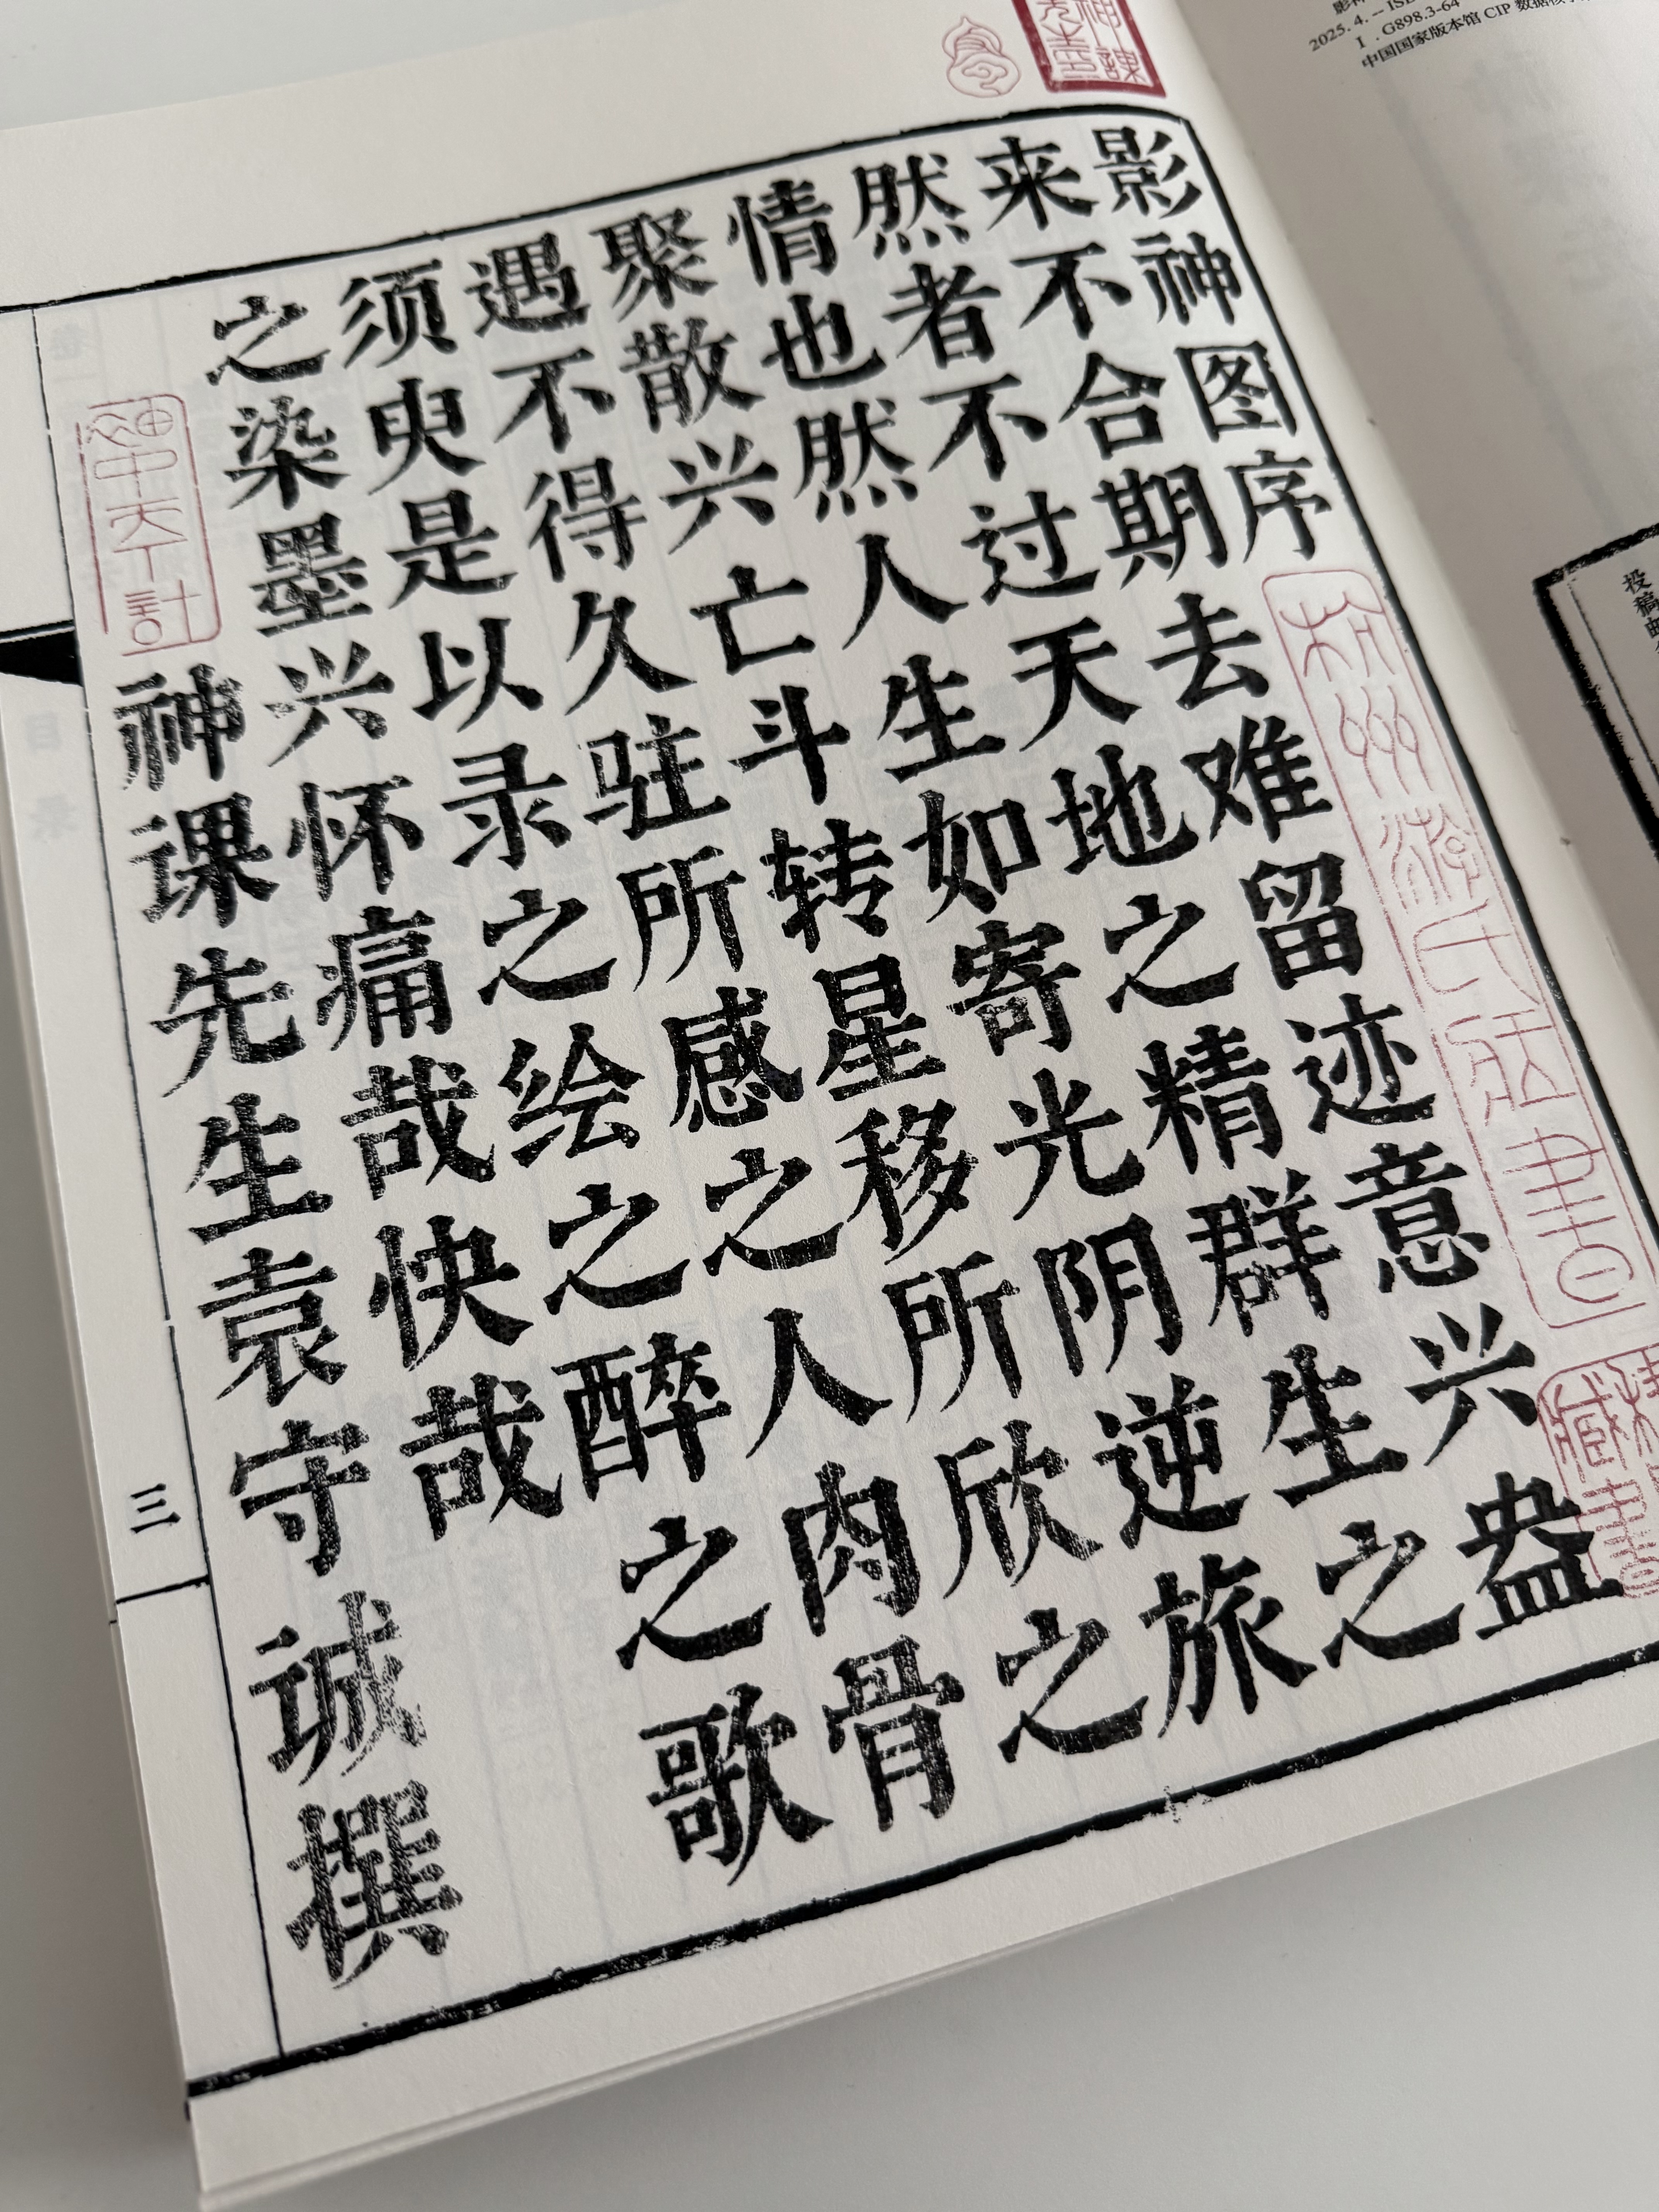 2025. 4. -- IS
Ⅰ. G898.3-64
中国国家版本馆 CIP 数据核
投稿邮
影神图序
来不合期去难留迹意兴盎
然者不过天地之精群生之
情也然人生如寄光阴逆旅
聚散兴亡斗转星移所欣之
遇不得久驻所感之人肉骨
须臾是以录之绘之醉之歌
之染墨兴怀痛哉快哉
神课先生袁守诚撰
三